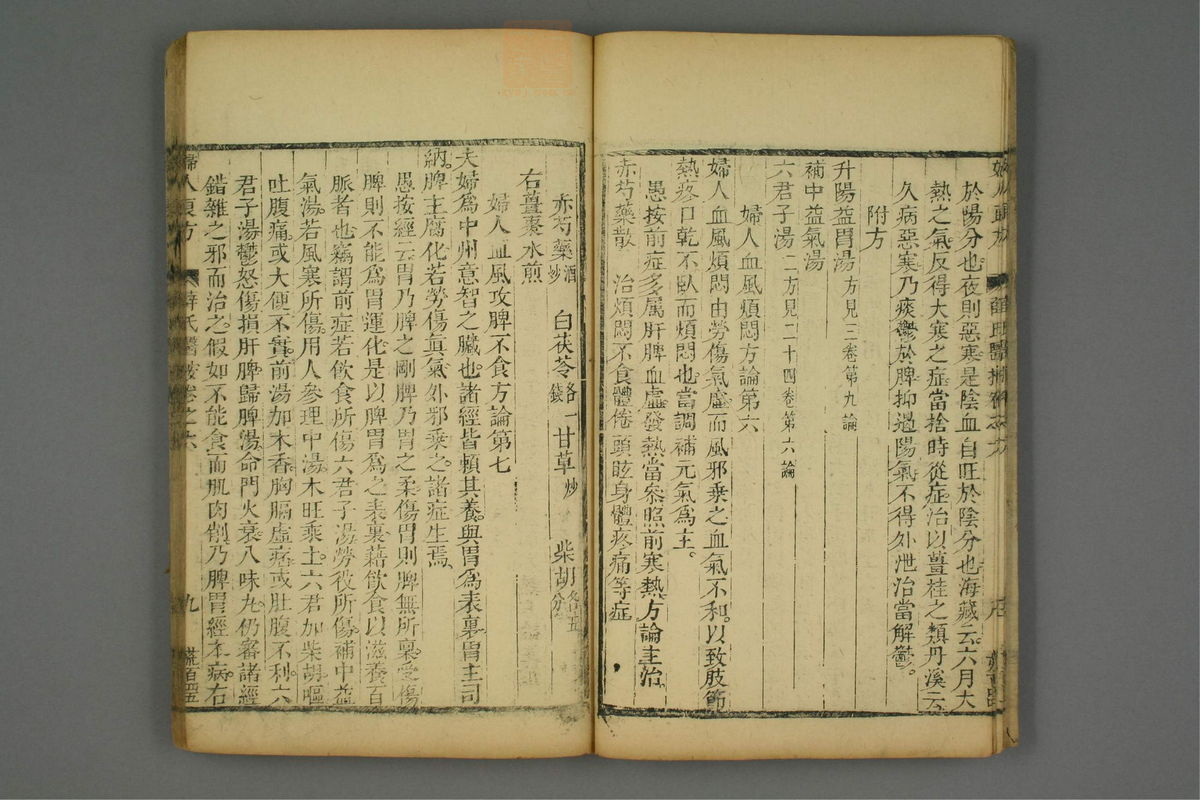 於陽分也夜則惡寒是陰血自旺於陰分也海藏云六月大
熱之氣反得大寒之症當捨時從症治以薑桂之類丹溪云
久病惡寒乃痰鬱於脾抑遏陽氣不得外泄治當解鬱。
附方
升陽益胃湯 方見三卷第九論
補中益氣湯
六君子湯 二方見二十四卷第六論
婦人血風煩悶方論第六
婦人血風煩悶由勞傷氣虛而風邪乘之血氣不利以致肢節
熱疼口乾不臥而煩悶也當調補元氣為主。
愚按前症多属肝脾血虛發熱當叅照前寒熱方論主治
赤芍藥散 治煩悶不食體倦頭眩身體疼痛等症
赤芍藥 酒炒 白茯苓 各一錢 甘草 炒 柴胡 各五分
右薑棗水煎
婦人血風攻脾不食方論第七
夫婦為中州意智之臟也諸經皆賴其養與胃為表裏胃主司
納脾主腐化若勞傷眞氣外邪乘之諸症生焉
愚按經云胃乃脾之剛脾乃胃之柔傷胃則脾無所稟受傷
脾則不能為胃運化是以脾胃為之表裏藉飲食以滋養百
脈者也竊謂前症若飲食所傷六君子湯勞役所傷補中益
氣湯若風寒所傷用人參理中湯木旺乘土六君加柴胡嘔
吐腹痛或大便不實前湯加木香胸膈虛痞或肚腹不利六
君子湯鬱怒傷損肝脾歸脾湯命門火衰八味丸仍審諸經
錯雜之邪而治之假如不能食而肌肉削乃脾胃經本病右
婦人良方 薛氏醫案卷之六 九 荒百四五